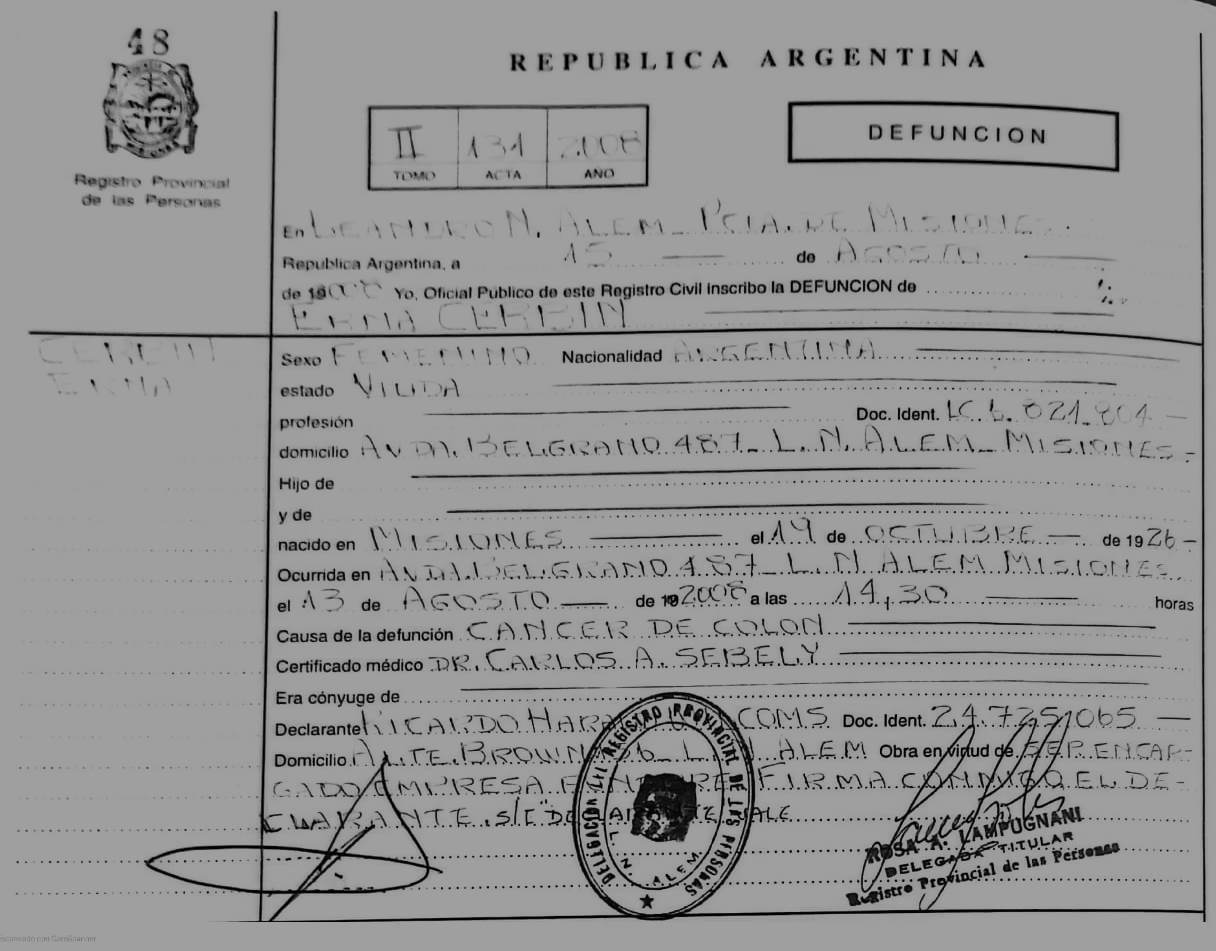 48
REPUBLICA ARGENTINA
II 131 2008
TOMO ACTA AÑO
DEFUNCION
Registro Provincial
de las Personas
En LEANDRO N. ALEM - PCIA. DE MISIONES.
Republica Argentina, a 15 de AGOSTO
de 19 Yo, Oficial Publico de este Registro Civil inscribo la DEFUNCION de
ERMA CERBIN
CERBIN
ERMA
Sexo FEMENINO Nacionalidad ARGENTINA
estado VIUDA
profesión Doc. Ident. LC 6.821.804 -
domicilio AVDA. BELGRANO 487 - L. N. ALEM - MISIONES -
Hijo de
y de
nacido en MISIONES el 19 de OCTUBRE de 1926 -
Ocurrida en AVDA. BELGRANO 487 - L. N. ALEM MISIONES
el 13 de AGOSTO de 192008 a las 14,30 horas
Causa de la defunción CANCER DE COLON
Certificado médico DR. CARLOS A. SEBELY
Era cónyuge de
Declarante RICARDO COMS. Doc. Ident. 24.725.1065 -
Domicilio ALTE. BROWN L. N. ALEM Obra en virtud de SER ENCAR-
GADO EMPRESA FIRMA CONMIGO EL DE-
CLARANTE. S/E "DECLARANTE" VALE
DELEGACION REGISTRO PROVINCIAL DE LAS PERSONAS
L. N. ALEM
ROSA A. LAMPUGNANI
DELEGADA TITULAR
Registro Provincial de las Personas
Escaneado con CamScanner